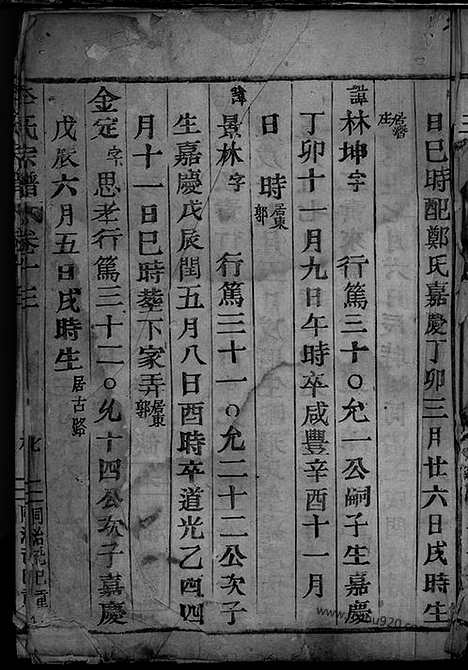 日巳時配鄭氏嘉慶丁卯三月廿六日戌時生
居潛庄
諱林坤字　行篤三十〇允一公嗣子生嘉慶
丁卯十一月九日午時卒咸豐辛酉十一月
日　時居東郭
諱景林字　行篤三十一〇允二十二公次子
生嘉慶戊辰閏五月八日酉時卒道光乙酉四
月十一日巳時葬下家弄居東郭
金定字思孝行篤三十二〇允十四公次子嘉慶
戊辰六月五日戌時生居古路
氏宗譜 卷十三